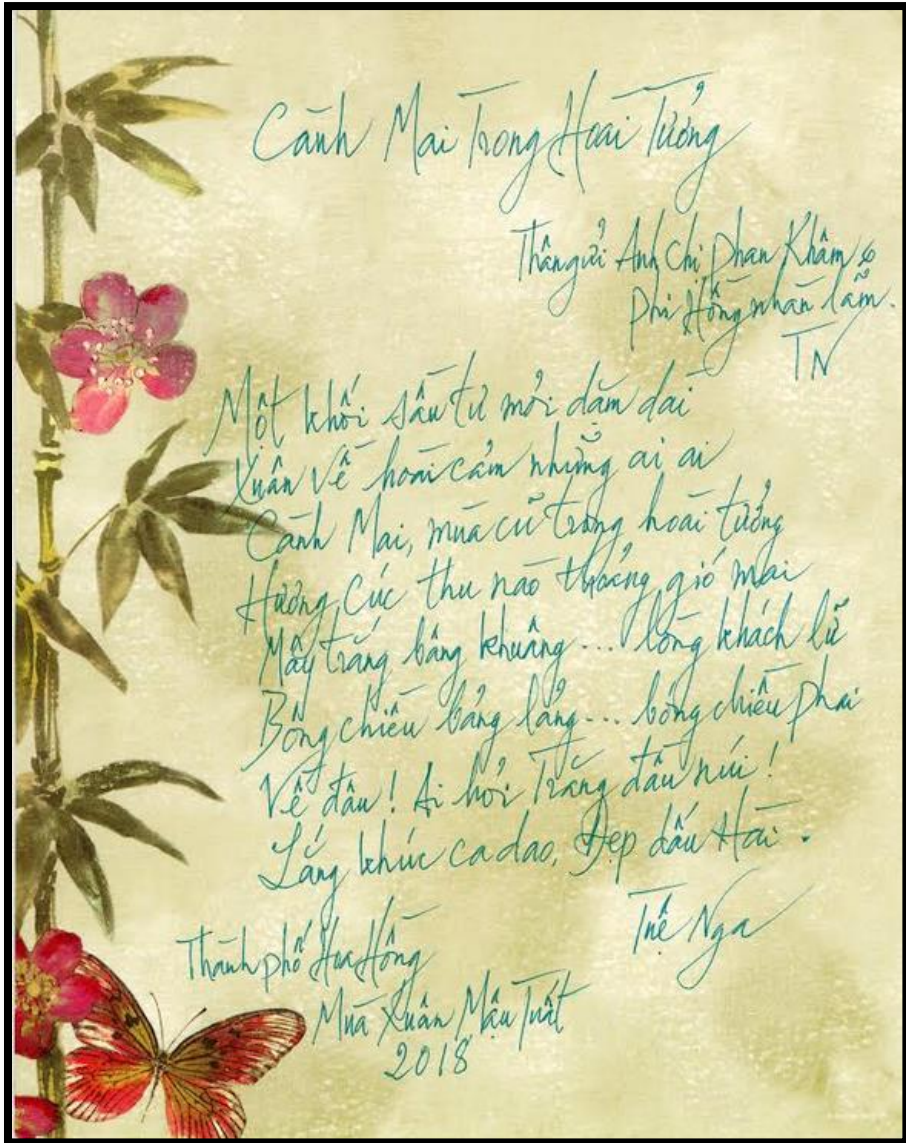 Cành Mai Trong Hoài Tưởng
Thân gửi Anh Chị Phan Khâm &
Phi Hồng nhàn lãm.
TN
Một khối sầu tư mới dặm dài
Xuân về hoài cảm những ai ai
Cành Mai, mùa cũ trong hoài tưởng
Hương Cúc thu nào thoảng gió mai
Mây trắng bâng khuâng... lòng khách lữ
Bóng chiều bảng lảng... bóng chiều phai
Về đâu! Ai hỏi Trăng đầu núi!
Lắng khúc ca dao, Đẹp dấu Hài.
Tuệ Nga
Thành phố Hoa Hồng
Mùa Xuân Mậu Tuất
2018